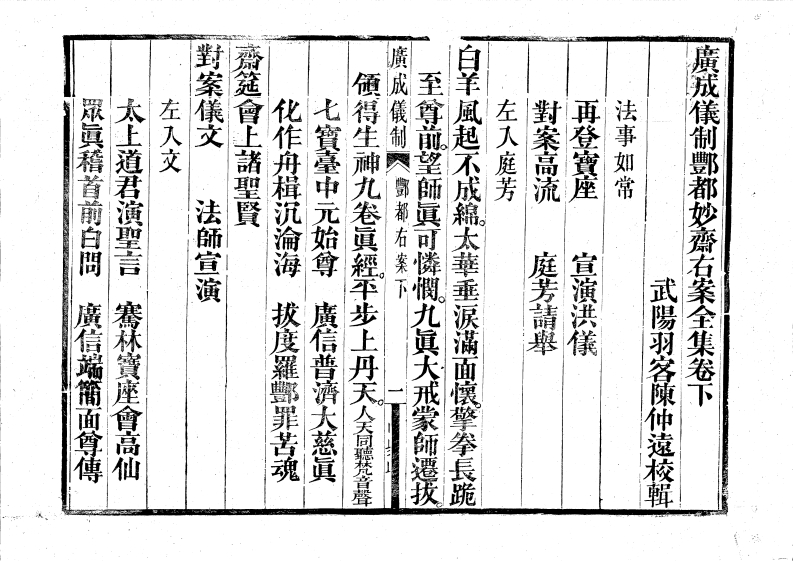 廣成儀制酆都妙齋右案全集卷下
武陽羽客陳仲遠校輯
法事如常
再登寶座 宣演洪儀
對案高流 庭芳請舉
左入庭芳
白羊風起不成綿。太華垂淚滿面懷。擎拳長跪
至尊前。望師眞可憐憫。九眞大戒蒙師遷拔。
廣成儀制 酆都右案下 一
領得生神九卷眞經。平步上丹天。人天同聽梵音聲
七寶臺中元始尊 廣信普濟大慈眞
化作舟楫沉淪海 拔度羅酆罪苦魂
齋筵會上諸聖賢
對案儀文 法師宣演
左入文
太上道君演聖言 騫林寶座會高仙
眾眞稽首前白問 廣信端簡面尊傳